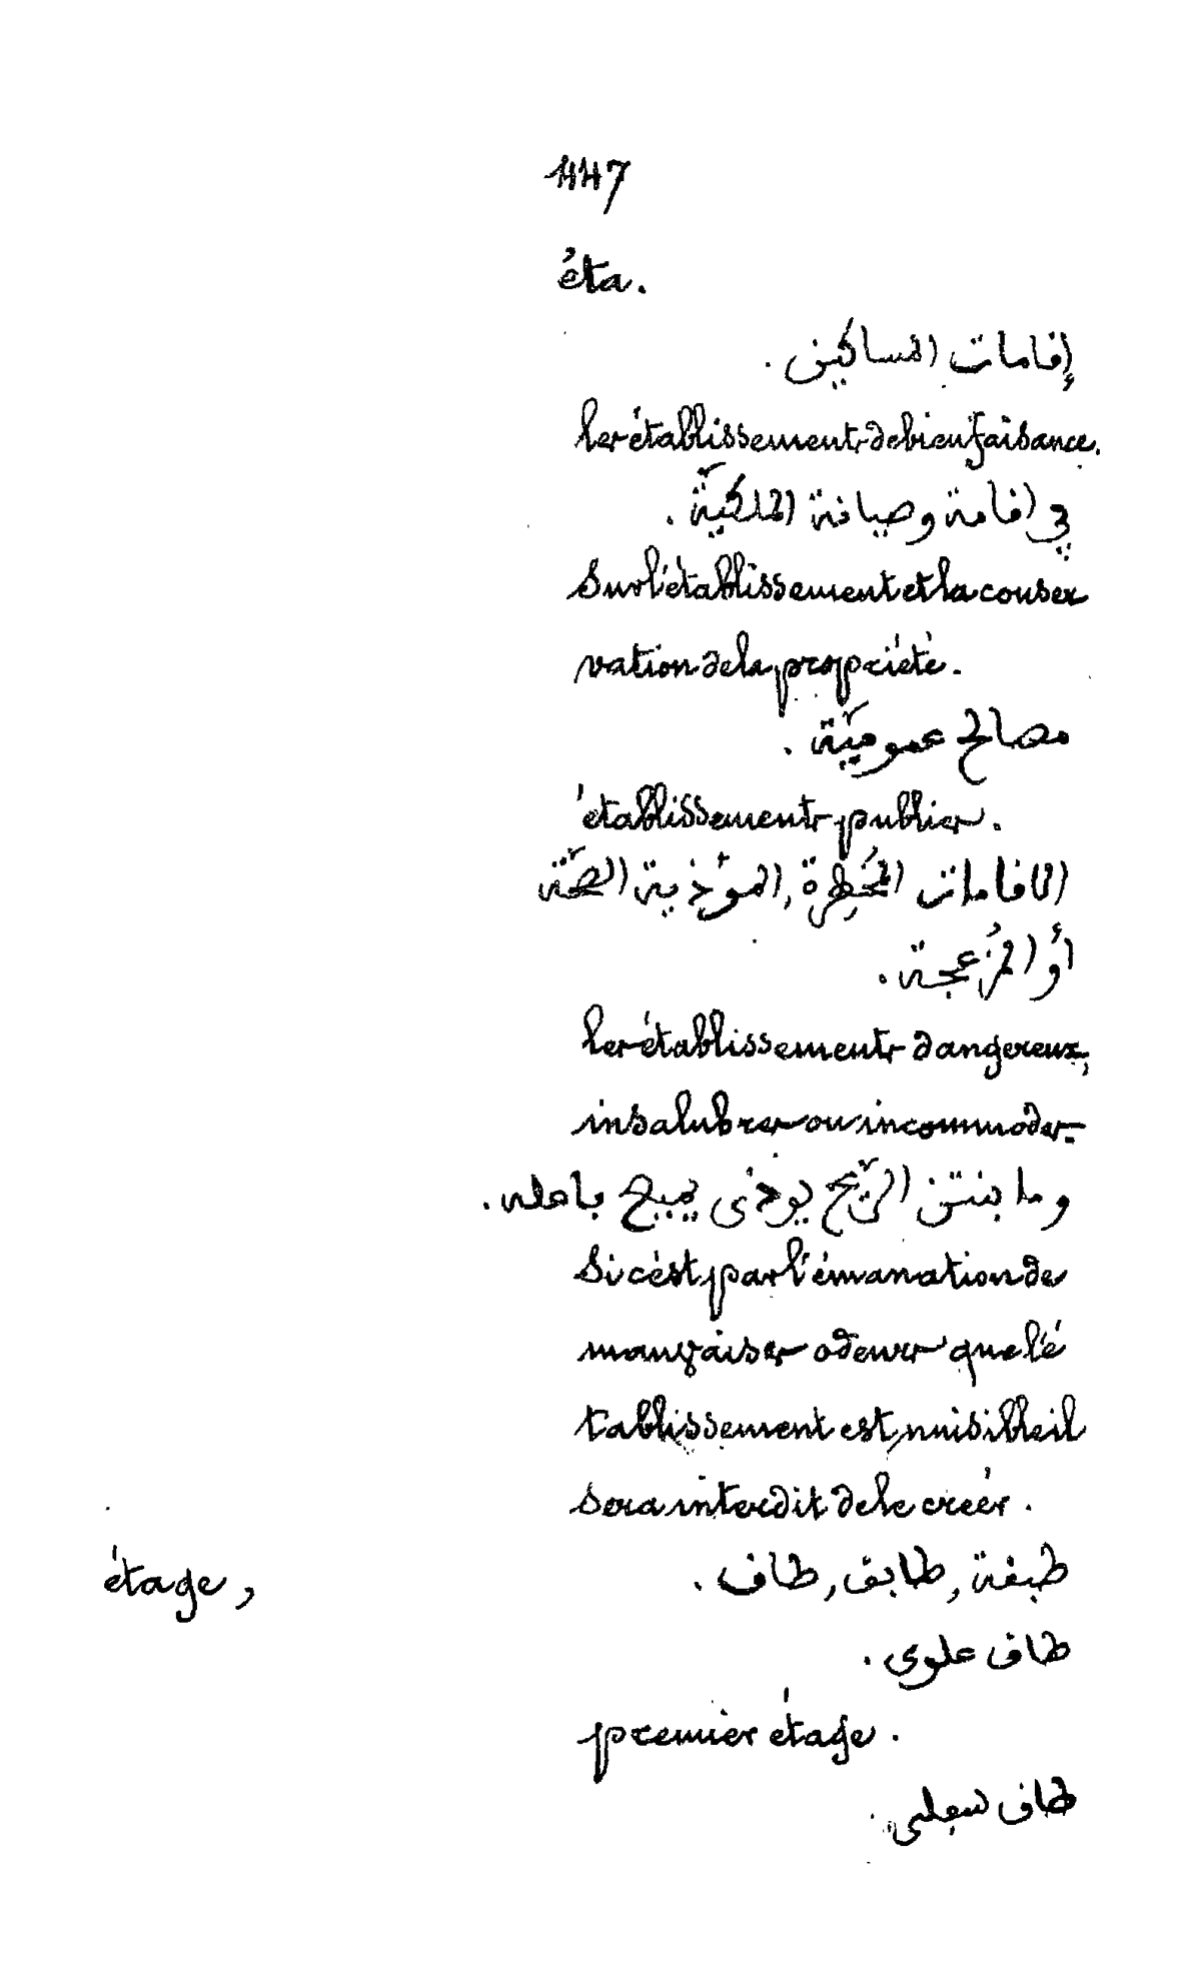 1147
éta.
إقامات المساكين.
les établissements de bienfaisance.
في اقامة وصيانة الملكيّة.
Sur l'établissement et la conser
vation de la propriété.
مصالح عموميّة.
établissements publics.
الاقامات المُخطِرة, المؤذية الصحّة
أو المُزعجة.
les établissements dangereux,
insalubres ou incommodes.
وما بنتن الرّيح يوذى يمنع باهله.
Si c'est par l'émanation de
mauvaises odeurs que l'é
tablissement est nuisible il
sera interdit de le créer.
étage, طبقة, طابق, طاق.
طاق علوى.
premier étage.
طاق سفلى.